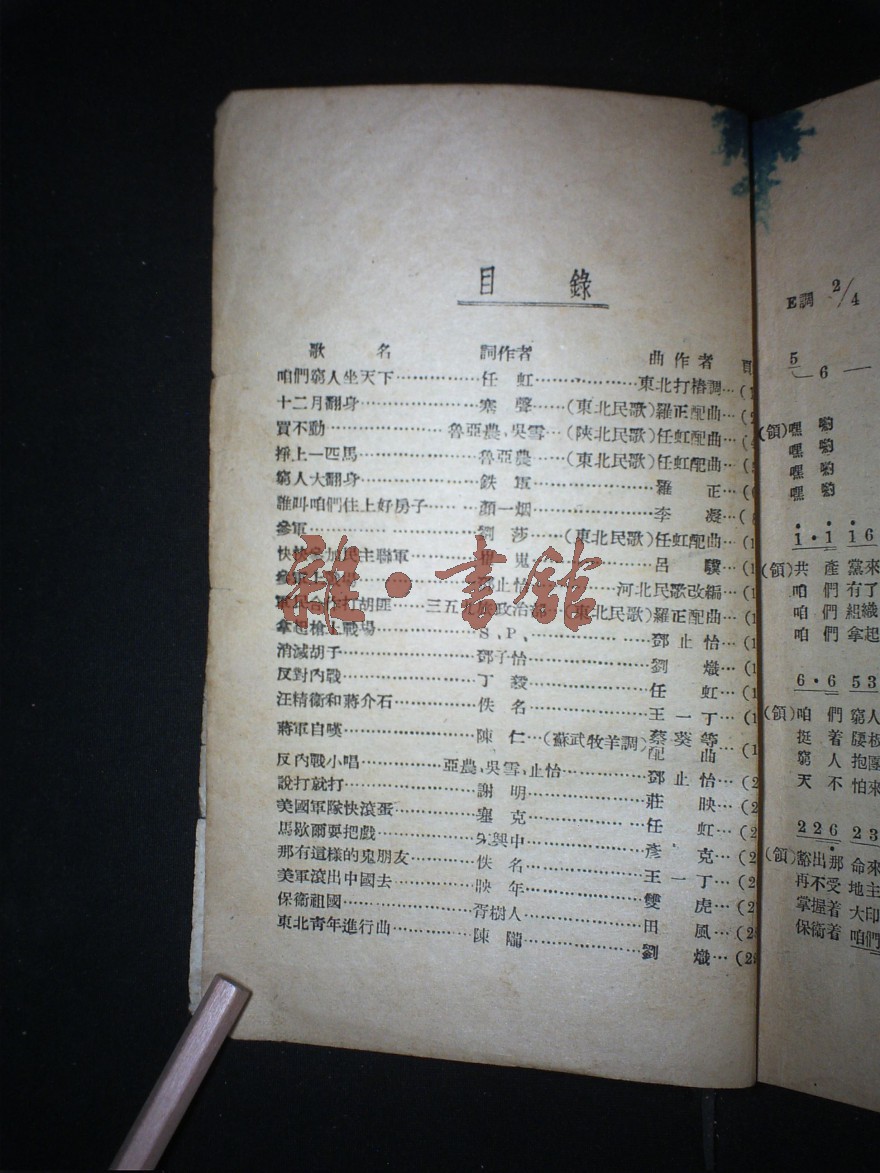 目錄
歌名 詞作者 曲作者 頁
咱們窮人坐天下……任虹……東北打樁調…(1
十二月翻身……塞聲……(東北民歌)羅正配曲…(2
買不動……魯亞農,吳雪…(陝北民歌)任虹配曲…(4
捧上一匹馬……魯亞農……(東北民歌)任虹配曲…(
窮人大翻身……鉄軍……羅正…(
誰叫咱們住上好房子……顏一烟……李凝…(
參軍……劉莎……(東北民歌)任虹配曲…(1
快快參加民主聯軍……呂驥…(1
參軍上戰場……鄧止怡……河北民歌改編…(1
軍民合作打胡匪…三五九旅政治部…(東北民歌)羅正配曲…(1
拿起槍上戰場……S、P、……鄧止怡…(1
消滅胡子……鄧子怡……劉熾…(1
反對內戰……丁毅……任虹…(1
汪精衛和蔣介石……佚名……王一丁…(1
蔣軍自嘆……陳仁…(蘇武牧羊調)蔡葵等配曲…(1
反內戰小唱……亞農,吳雪,止怡……鄧止怡…(2
說打就打……謝明……莊映…(2
美國軍隊快滾蛋……塞克……任虹…(2
馬歇爾耍把戲……興中……彥克…(2
那有這樣的鬼朋友……佚名……王一丁…(2
美軍滾出中國去……映年……雙虎…(2
保衛祖國……胥樹人……田風…(2
東北青年進行曲……陳隴……劉熾…(2
雜·書館
E調 2/4
5
6 —
(領)嘿喲
嘿喲
嘿喲
嘿喲
1·1 16
(領)共產黨來
咱們有了
咱們組織
咱們拿起
6·6 53
(領)咱們窮人
挺着腰板
窮人抱團
天不怕來
226 23
(領)豁出那命來
再不受地主
掌握着大印
保衛着咱們